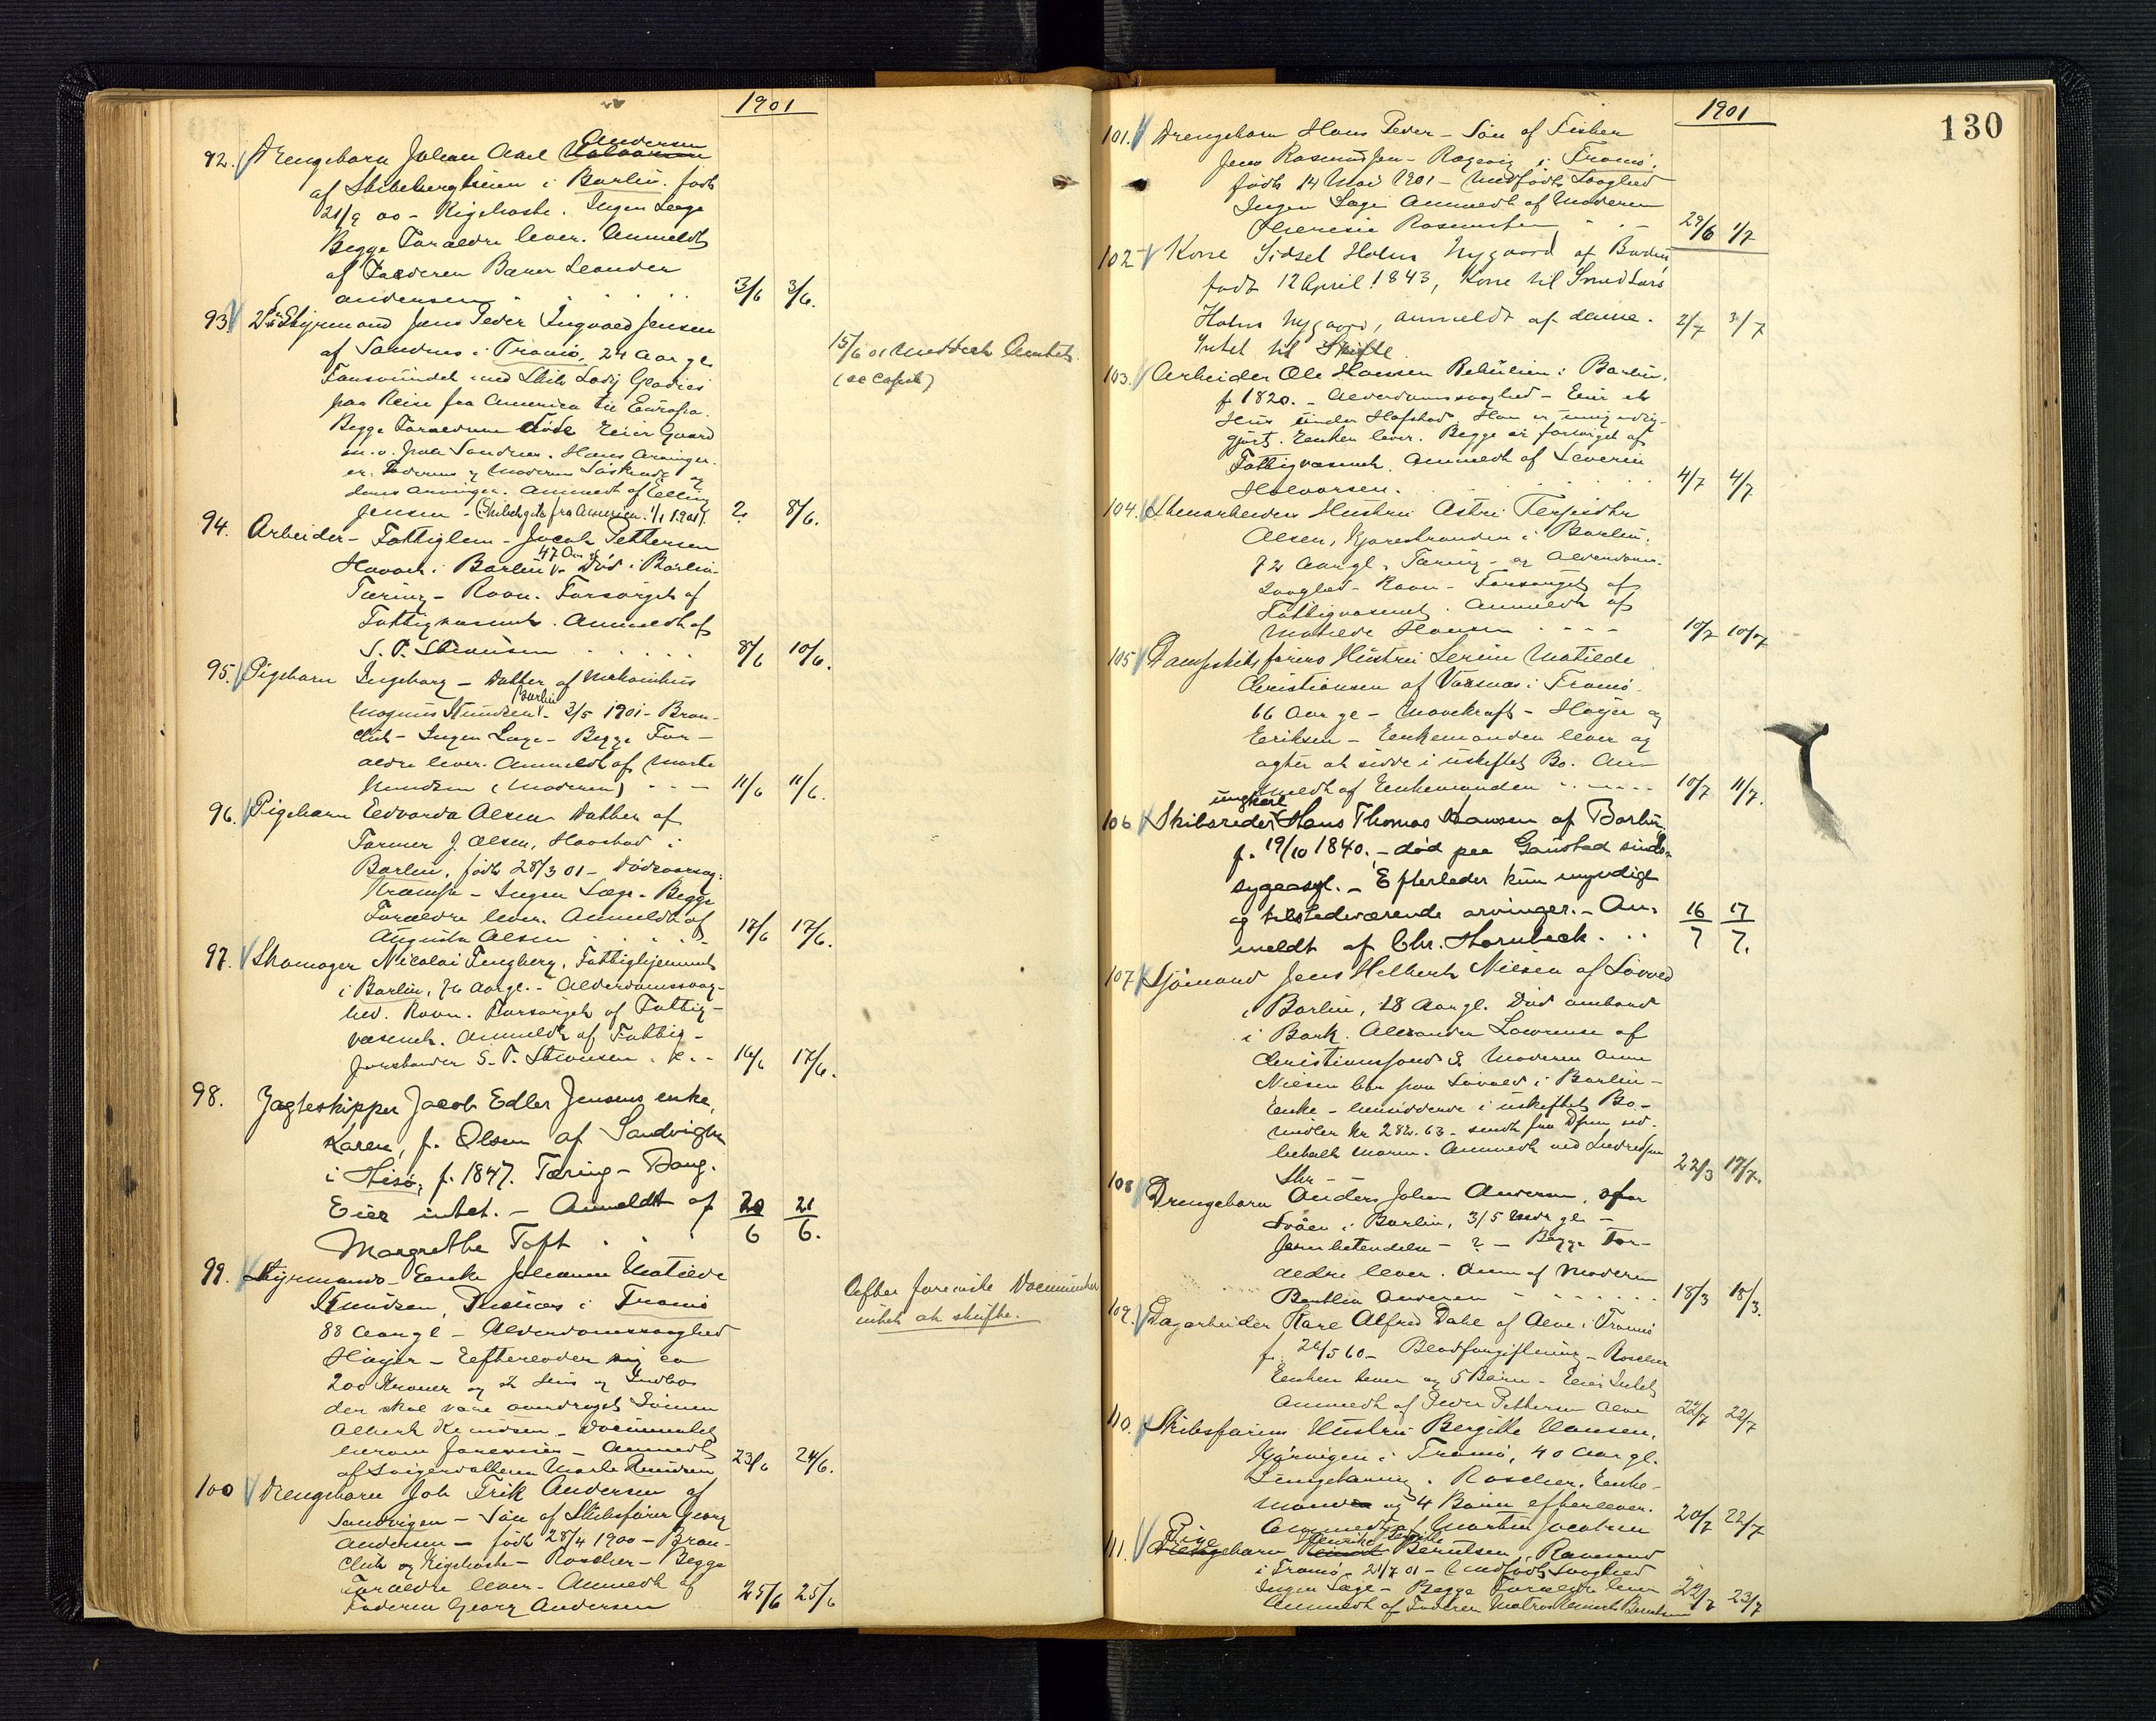 1901
92. Drengebarn Johan Axel Andersen
af Skibsbergheien i Barbu. født
21/9 00 - Kighoste. Ingen Læge
Begge Forældre lever. Anmeldt
af Faderen Leander
Andersen 3/6 3/6.
93 2den Styrmand Jens Peder Ingvald Jensen
af Sandnes i Tromø, 24 Aar gl
Forsvundet med Skib Lady
paa Reise fra America til Europa.
Begge Forældrene døde Eier Gaard
m.v. paa Sandnes. Hans Arvinger
er Faderens og Moderens Søskende og
deres Arvinger. Anmeldt af
Jensen - (Skibet gik fra America 1/1 1901). 2. 8/6.
15/6 01 Meddelt Amtet
94. Arbeider - Fattiglem - Jacob Pettersen
Havact i Barbu 47 Aar gl - Død i Barbu
Tæring - Ravn. Forsørget af
Fattigvæsenet. Anmeldt af
S. T. 8/6 10/6.
95. Pigebarn Ingeborg - Datter af
Magnus Knudsen Barbu - 3/5 1901 - Bron-
chit - Ingen Læge - Begge For-
ældre lever. Anmeldt af Marte
Knudsen (Moderen) - - - 11/6 11/6.
96. Pigebarn Edvarda Olsen Datter af
Farmer J. Olsen, i
Barbu, født 28/3 01 - Dødsaarsag:
Krampe - Ingen Læge. Begge
Forældre lever. Anmeldt af
Augusta Olsen 17/6 17/6.
97. Skomager Nicolai Tengberg, Fattighjemmet
i Barbu, 76 Aar gl. - Alderdomssvag-
hed. Ravn. Forsørget af Fattig-
væsenet. Anmeldt af Fattig-
forstander S. T. 16/6 17/6.
98. Jagteskipper Jacob Edler Jensens enke,
Karen, f. Olsen af Sandvigen
i Hisø, f. 1847. Tæring - Dang.
Eier intet. - Anmeldt af
Margrethe Toft . . . 20/6 21/6.
99. Styrmands-Enke Johanne Matilde
Knudsen, i Tromø
88 Aar gl - Alderdomssvaghed
Høyer - Efterlader sig ca
200 Kroner og et Hus og Indbo
der skal være overdraget Sønnen
Albert Knudsen - Documentet
herom forevises - Anmeldt
af Svigerdatteren Marte Knudsen 23/6 24/6.
Efter foreviste Documenter
intet at skifte.
100 Drengebarn Joh Erik Andersen af
Sandvigen - Søn af Skibsfører Georg
Andersen - født 28/4 1900 - Bron-
chit og Kighoste - Roscher - Begge
Forældre lever - Anmeldt af
Faderen Georg Andersen 25/6 25/6
1901
130
101. Drengebarn Hans Peder - Søn af Fisker
Jens Rasmussen - Ragevig i Tromø.
født 14 Mai 1901 - Medfødt Svaghed
Ingen Læge Anmeldt af Moderen
Rasmussen - - 29/6 1/7
102 Kone Sidsel Holm Nygaard af Barbu
født 12 April 1843, Kone til Smed Lars
Holm Nygaard, anmeldt af denne. 2/7 3/7
Intet til Skifte
103. Arbeider Ole Hansen i Barbu.
f 1820. - Alderdomssvaghed - Eier et
Hus under Hofstad. Han er umyndig-
gjort. Enken lever. Begge er forsørget af
Fattigvæsenet. Anmeldt af Severin
Halvorsen. 4/7 4/7
104. Stenarbeiders Hustru Astri Terjesdtr
Olsen, i Barbu.
72 Aar gl. Tæring - og Alderdoms-
svaghed - Ravn - Forsørget af
Fattigvæsenet. Anmeldt af
Matilde Hansen - - - 10/7 10/7
105 Dampskibsførers Hustru Serine Matilde
Christiansen af i Tromø.
66 Aar gl - Mavekræft - Høyer og
Eriksen - Enkemanden lever og
agter at sidde i uskiftet Bo. An-
meldt af Enkemanden - - - 10/7 11/7.
106 Skibsreder ungkarl Hans Thomas Hansen af Barbu,
f. 19/10 1840. - død paa Gaustad sinds-
sygeasyl. - Efterlader kun myndige
og tilstedeværende arvinger. - An-
meldt af Chr. Stornbeck. . . 16/7 17/7.
107 Sjømand Jens Helbert Nielsen af
i Barbu, 18 Aar gl. Død ombord
i Bark Alexander Lawrence af
Christianssand S. Moderen Anne
Nielsen bor paa i Barbu -
Enke - hensiddende i uskiftet Bo -
22/3 17/7.
108 Drengebarn Anders Johan Andersen,
i Barbu, 3/5 Mdr gl -
- ? - Begge For-
ældre lever. Anm af Moderen
Andersen - - - 18/3 18/3.
109. Dagarbeider Karl Alfred Dahl af Alve i Tromø
f. 26/5 60 - Blodforgiftning - Roscher
Enken lever og 5 Børn - Eier Intet
Anmeldt af Peder Pettersen Alve 22/7 22/7
110. Skibsførers Hustru Bergitte Hansen,
i Tromø, 40 Aar gl.
Roscher. Enke-
mand og 4 Børn efterlever.
Anmeldt af Martin Jacobsen 20/7 22/7
111. Pigebarn Berntsen, Ravnsund
i Tromø, 21/7 01 - Medfødt Svaghed
Ingen Læge - Begge Forældre lever
Anmeldt af Faderen Matros Berntsen 22/7 23/7